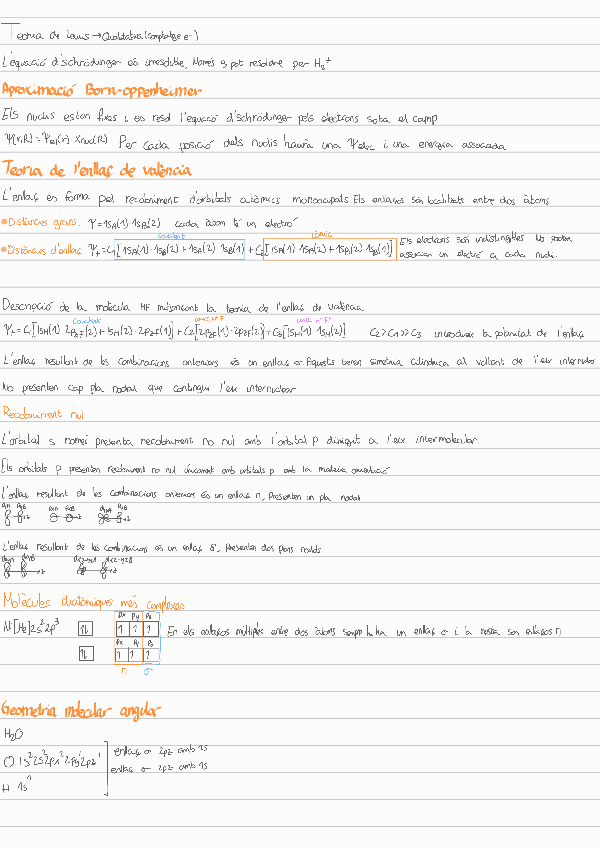 Teoria de Lewis → Qualitativa (comptatge e-)
L'equació d'schrödinger és irresoluble, Només es pot resoldre per H₂⁺
Aproximació Born-oppenheimer
Els nuclis estan fixes i es resol l'equació d'schrödinger pels electrons sota el camp
Ψ(r,R)=Ψel(r)·Xnucl(R) Per cada posició dels nuclis haurà una Ψelec i una energia associada
Teoria de l'enllaç de valència
L'enllaç es forma pel recobriment d'orbitals atòmics monoocupats Els enllaços són localitzats entre dos àtoms
Distàncies grans: Ψ=1sA(1)·1sB(2) cada àtom té un electró
covalent iònic
Distàncies d'enllaç Ψ₊=C₁[1sA(1)·1sB(2)+1sA(2)·1sB(1)]+C₂[1sA(1)·1sA(2)+1sB(2)·1sB(1)] Els electrons són indistingibles No podem
associar un electró a cada nucli.
Descripció de la molècula HF mitjançant la teoria de l'enllaç de valència
Covalent iònic H⁺F⁻ iònic H⁻F⁺
Ψ₊=C₁[1sH(1)·2pzF(2)+1sH(2)·2pzF(1)]+C₂[2pzF(1)·2pzF(2)]+C₃[1sH(1)·1sH(2)] C₂>C₁>>C₃ introdueix la polaritat de l'enllaç
L'enllaç resultant de les combinacions anteriors és un enllaç σ. Aquests tenen simetria cilíndrica al voltant de l'eix internuclear
No presenten cap pla nodal que contingui l'eix internuclear
Recobriment nul
L'orbital s només presenta recobriment no nul amb l'orbital p dirigit a l'eix intermolecular.
Els orbitals p presenten recobriment no nul únicament amb orbitals p amb la mateixa orientació
L'enllaç resultant de les combinacions anteriors és un enllaç π, Presenten un pla nodal
L'enllaç resultant de les combinacions és un enllaç δ, Presenten dos plans nodals
Molècules diatòmiques més complexes
px py pz
N:[He]2s²2p³ En els enllaços múltiples entre dos àtoms sempre hi ha un enllaç σ i la resta son enllaços π
px py pz
π σ
Geometria molecular angular
H₂O
O: 1s²2s²2px²2py¹2pz¹ enllaç σ 2pz amb 1s
enllaç σ 2pz amb 1s
H: 1s¹